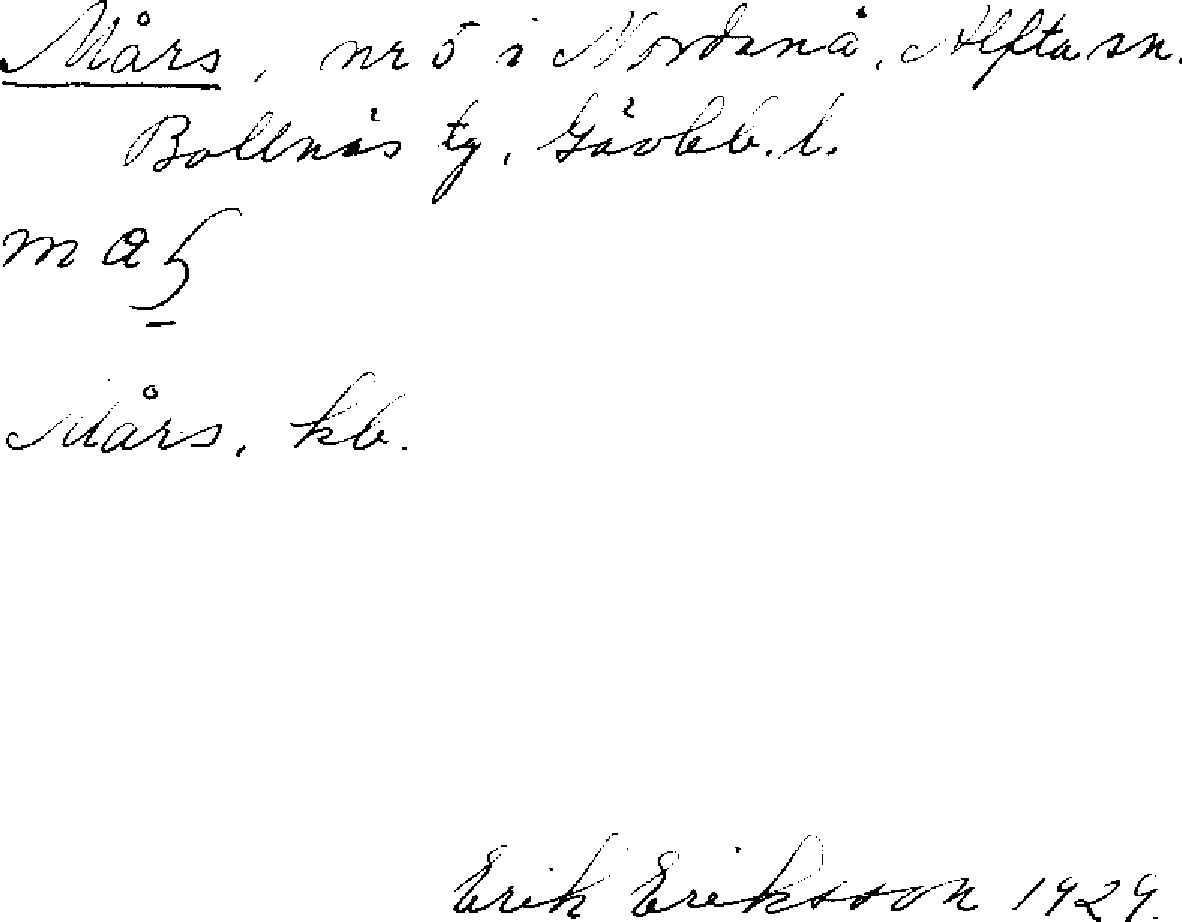 Mårs, nr 5 i Nordanå, Alfta sn.
Bollnäs tg, Gävleb. l.
Mårs, kb.
Erik Eriksson 1929.